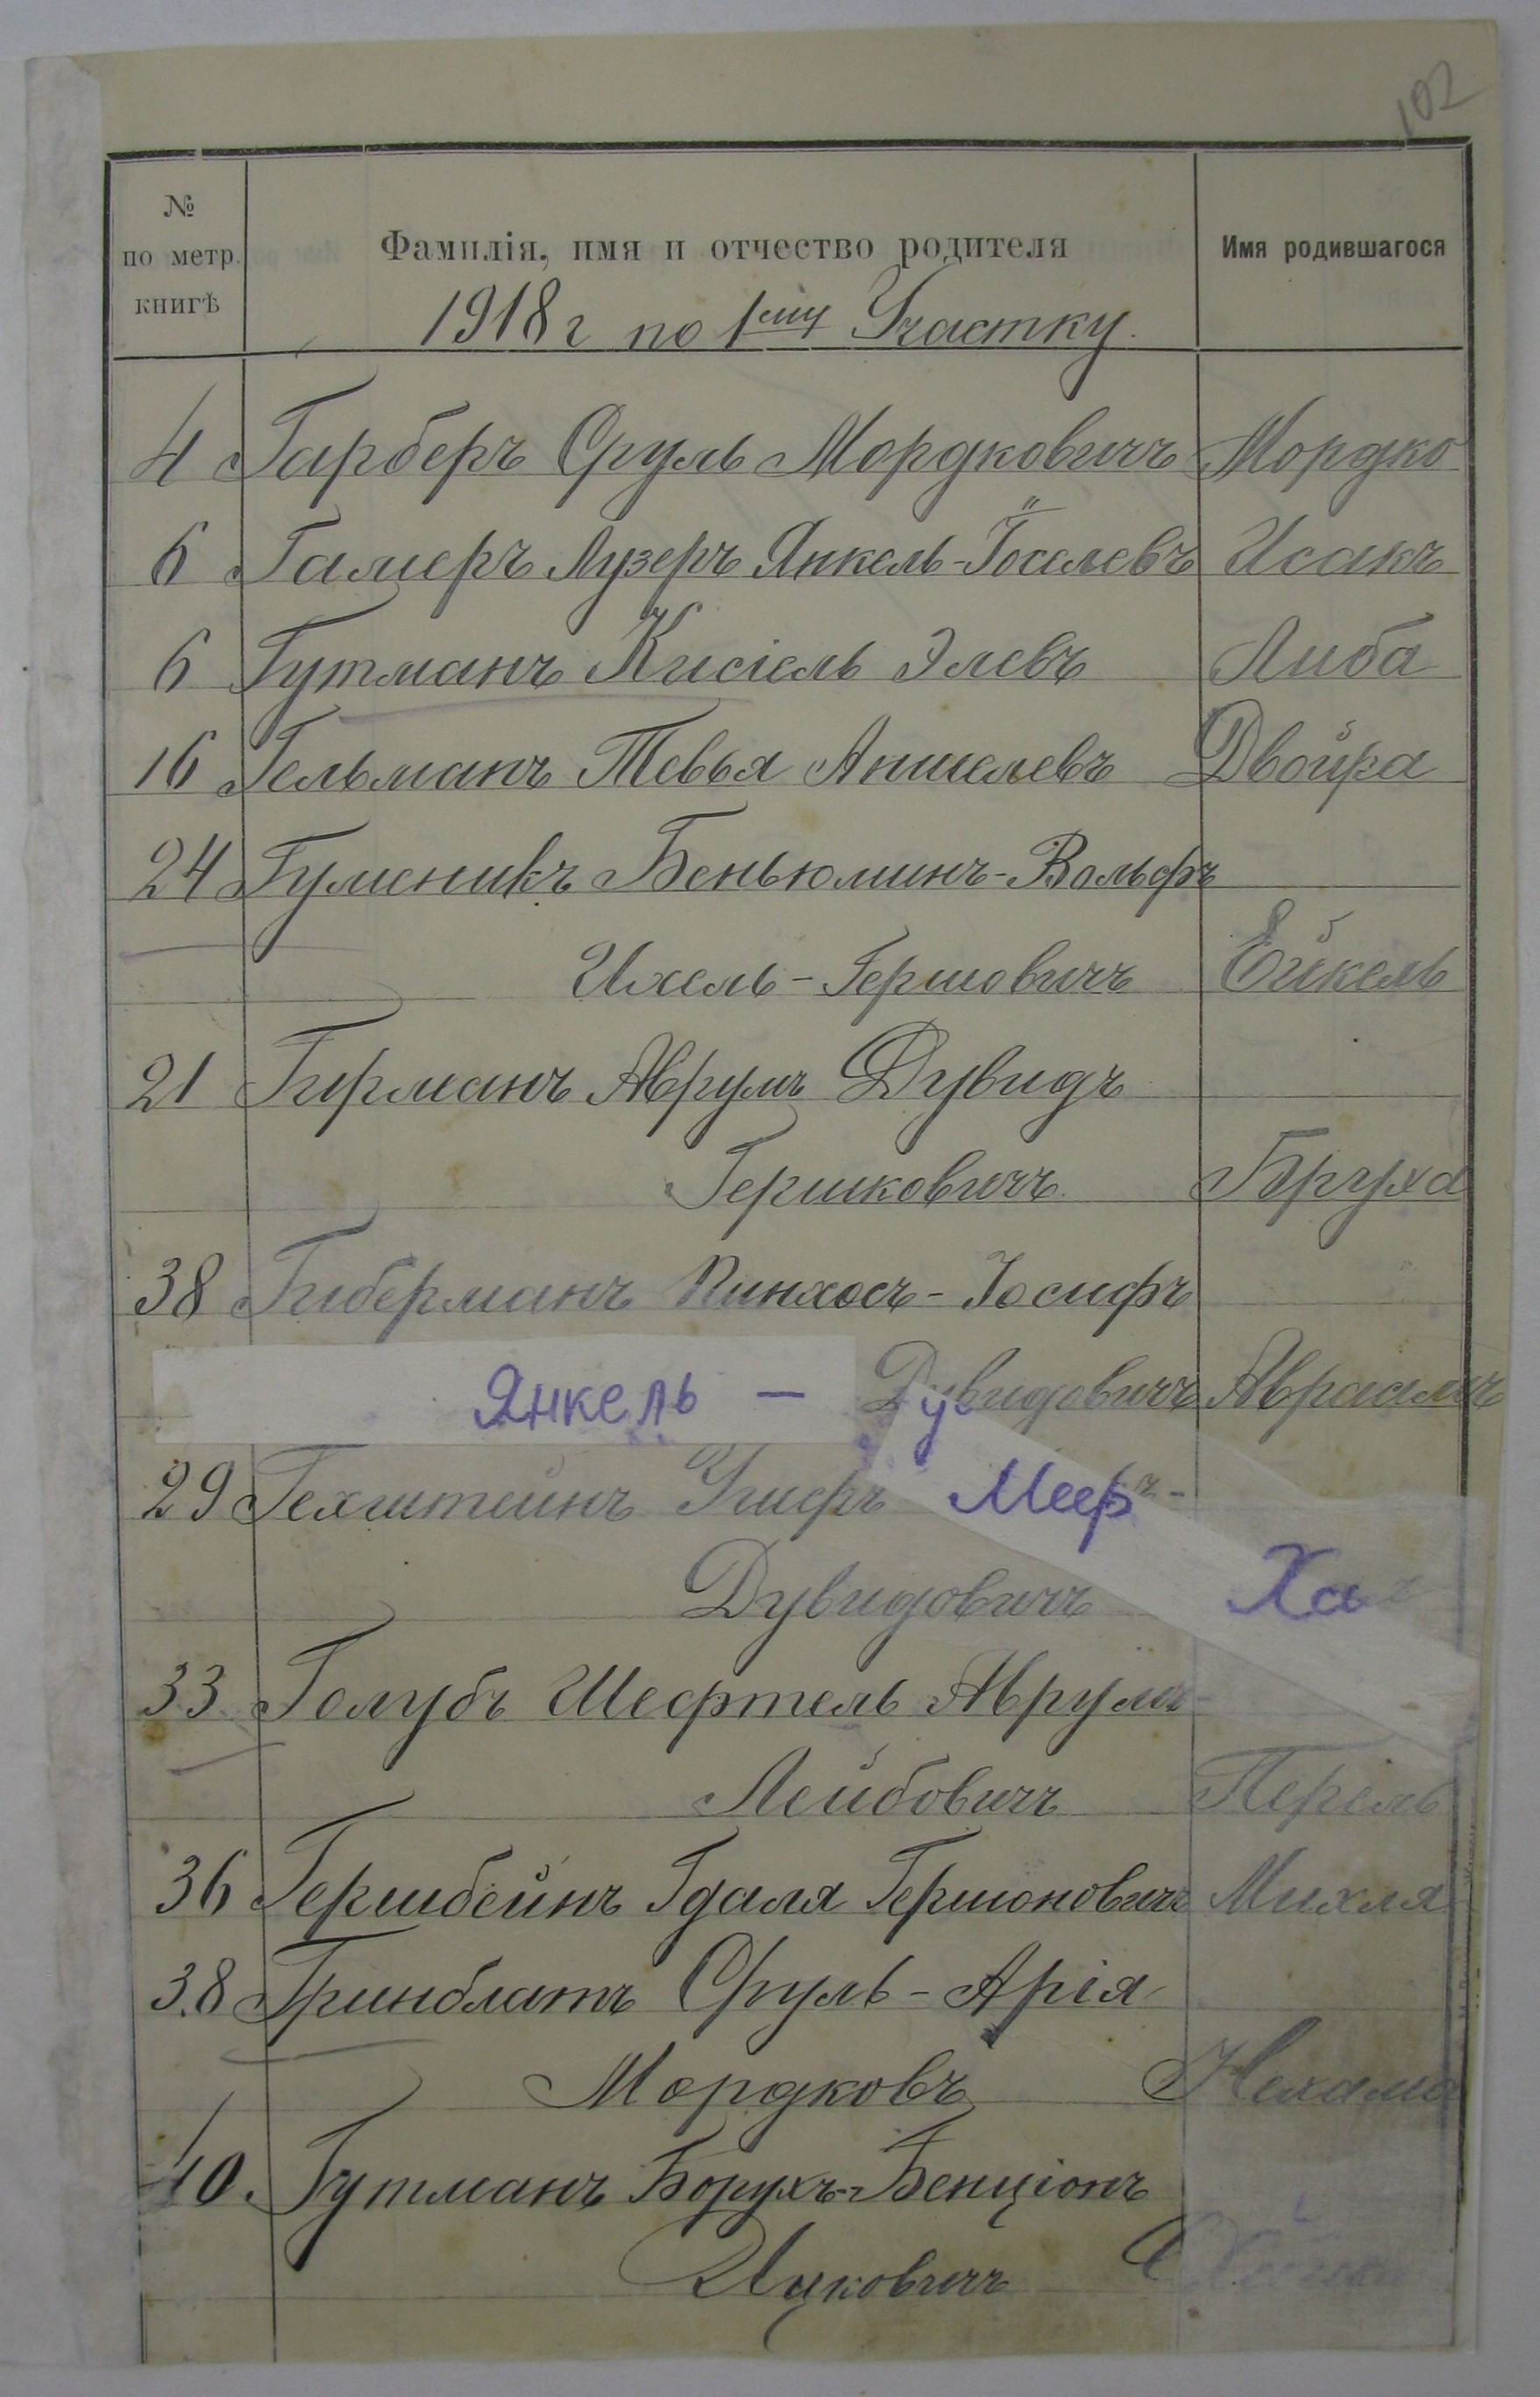 102
№ по метр. книгѣ
Фамилія, имя и отчество родителя
Имя родившагося
1918 г по 1му Участку.
4 Гарберъ Сруль Мордковичъ Мордко
6 Галперъ Лузеръ Янкель-Іоселевъ Исакъ
6 Гутманъ Кисіель Элевъ Либа
16 Гельманъ Тевья Аншелевъ Двойра
24 Гуменикъ Беньюминъ-Вольфъ
Ихель-Гершовичъ Ейкель
21 Гирманъ Аврумъ Дувидъ
Гершковичъ Бруха
38 Гиберманъ Пинхосъ-Іосифъ
Янкель - Дувидовичъ Авраамъ
29 Гехштейнъ Ушеръ Меер
Дувидовичъ Хая
33 Голубъ Шефтель Аврумъ-
Лейбовичъ Перель
36 Гершбейнъ Гдаля Гершоновичъ Михля
38 Гринблатъ Сруль-Арія
Мордковъ Нехама
40. Гутманъ Борухъ-Бенціонъ
Ицковичъ